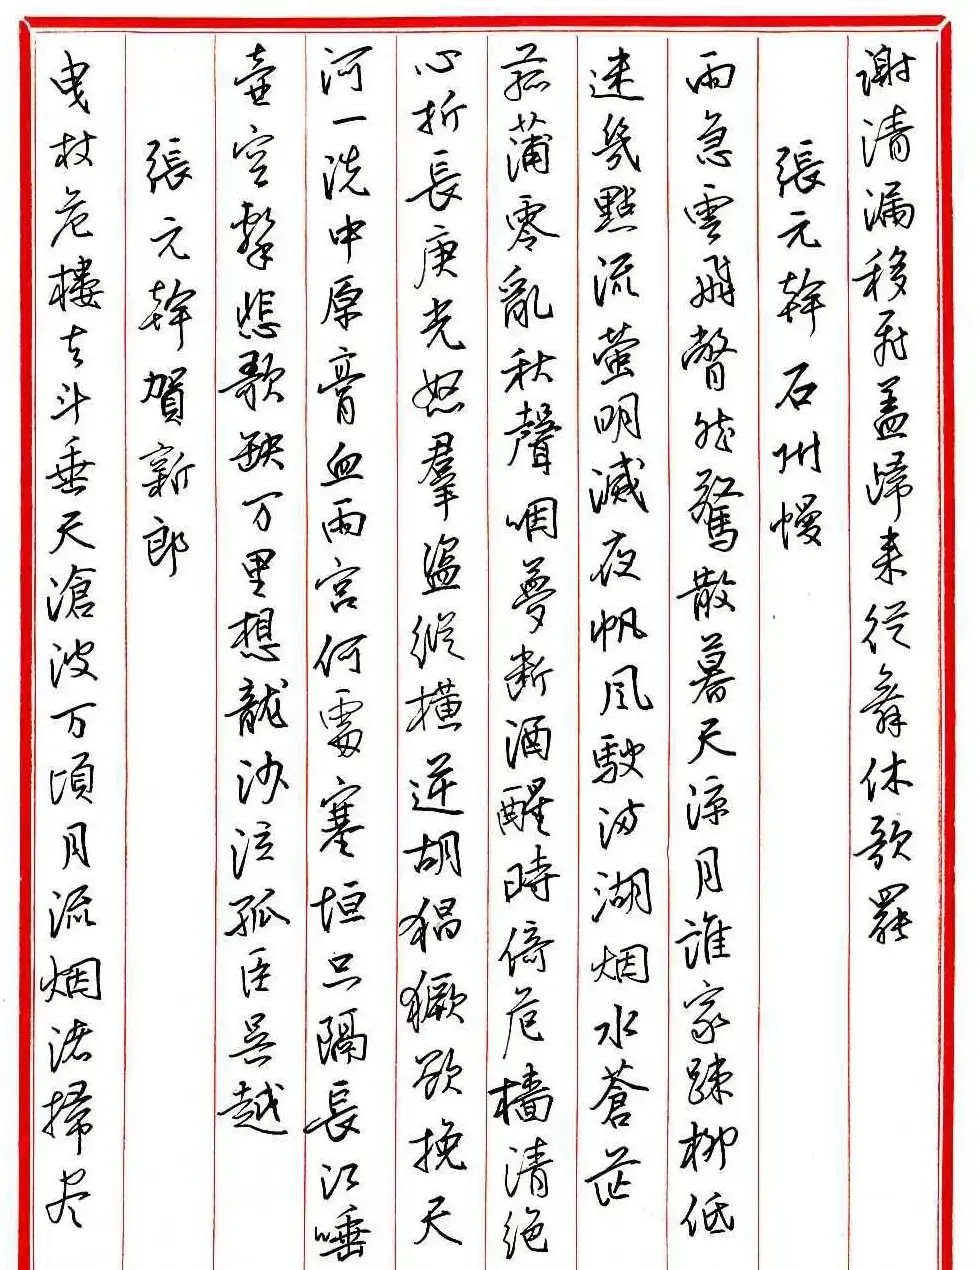 謝清漏移飛盖歸来從舞休歌罷
張元幹石州慢
雨急雲飛瞥然驚散暮天涼月誰家疎柳低
迷幾點流螢明滅夜帆風駛滿湖烟水蒼茫
菰蒲零亂秋聲咽夢斷酒醒時倚危檣清絕
心折長庚光怒羣盜縱横逆胡猖獗欲挽天
河一洗中原膏血兩宮何處塞垣只隔長江唾
壺空擊悲歌缺万里想龍沙泣孤臣吳越
張元幹賀新郎
曳杖危樓去斗垂天滄波万頃月流烟渚掃尽